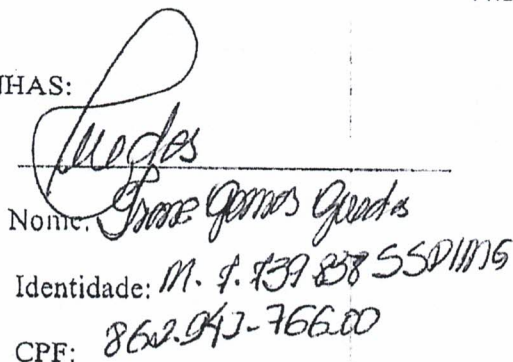 NHAS:
Guedes
Nome: Gomes Guedes
Identidade: M. 7.739.838 SSP/MG
CPF: 862.943-766.00